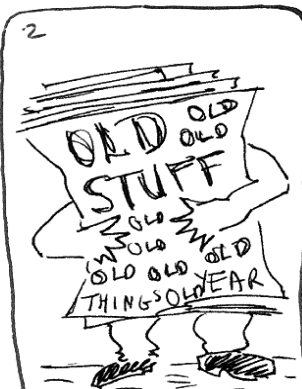 2
OLD OLD
OLD
STUFF
OLD
OLD
OLD OLD OLD
THINGS OLD YEAR